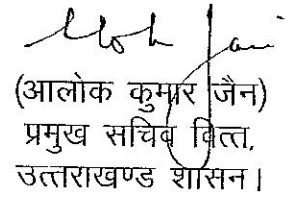 (आलोक कुमार जैन)
प्रमुख सचिव वित्त,
उत्तराखण्ड शासन।